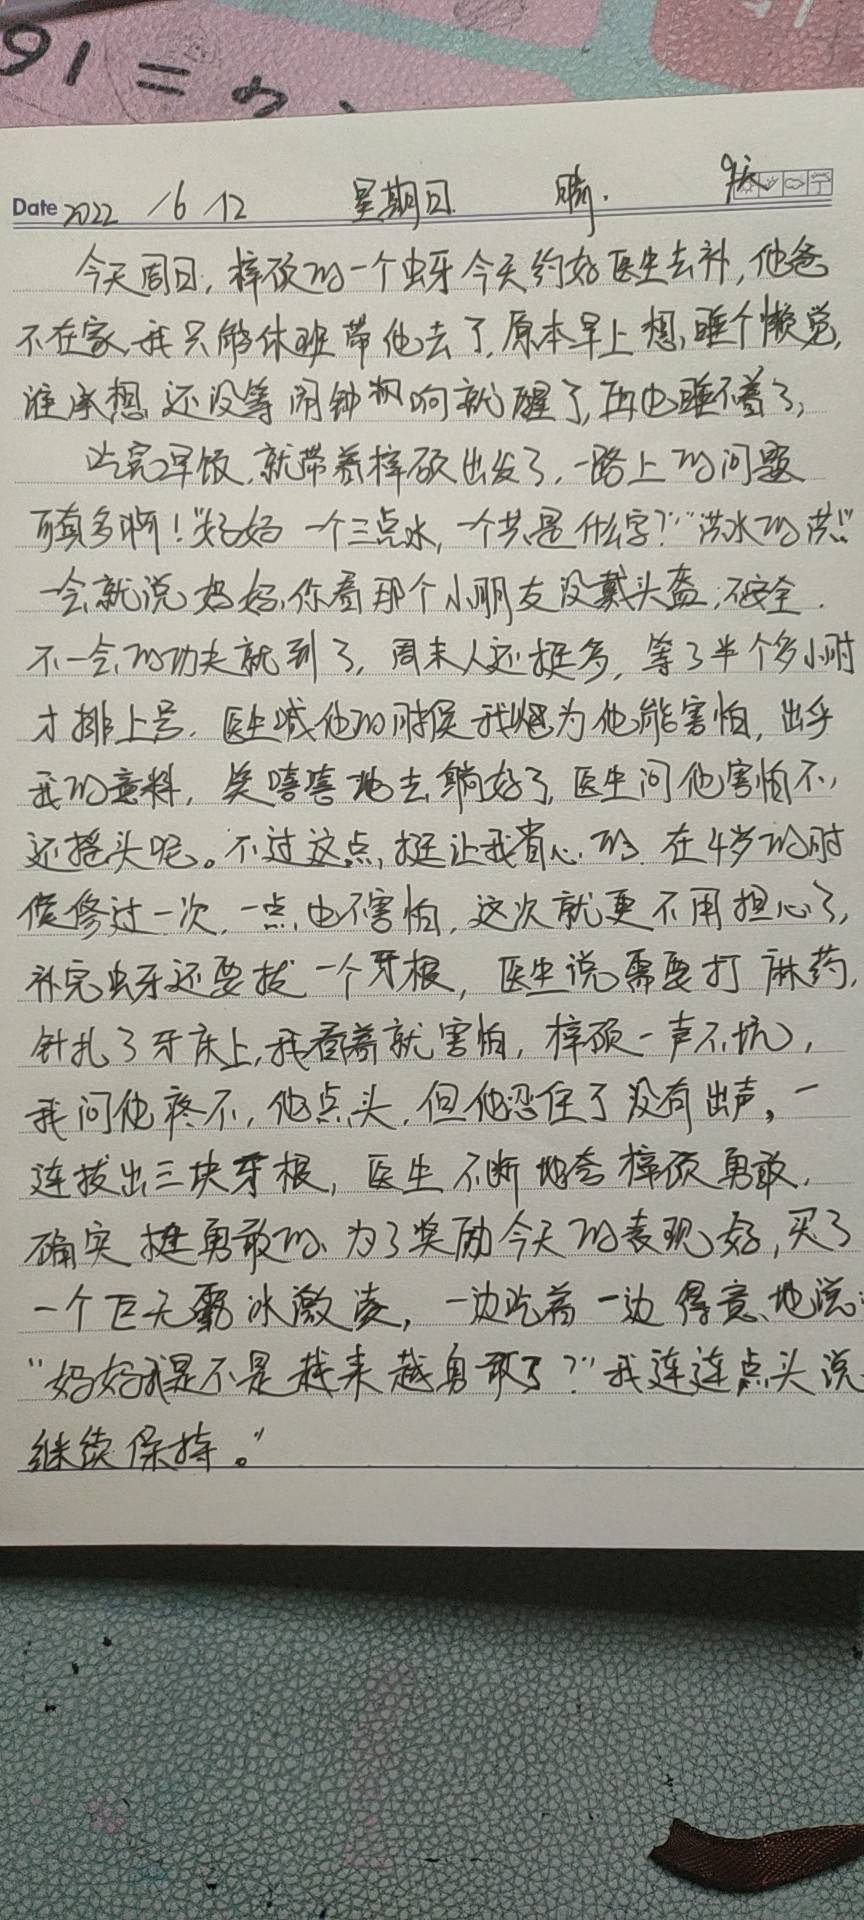 Date 2022 / 6 12 星期日 晴. 9天
今天周日, 梓硕的一个虫牙今天约好医生去补, 他爸
不在家, 我只能休班带他去了, 原本早上想, 睡个懒觉,
谁承想, 还没等闹钟响就醒了, 再也睡不着了,
吃完早饭, 就带着梓硕出发了, 一路上的问题
可真多啊! "妈妈 一个三点水, 一个共是什么字?" "洪水的洪."
一会就说 妈妈, 你看那个小朋友没戴头盔, 不安全.
不一会的功夫就到了, 周末人还挺多, 等了半个多小时
才排上号. 医生喊他的时候 我以为他能害怕, 出乎
我的意料, 笑嘻嘻地去躺好了, 医生问他害怕不,
还摇头呢。不过这点, 挺让我省心的. 在4岁的时
候修过一次, 一点也不害怕, 这次就更不用担心了,
补完虫牙还要拔一个牙根, 医生说需要打麻药,
针扎了牙床上, 我看着就害怕, 梓硕一声不坑,
我问他疼不, 他点头, 但他忍住了没有出声, 一
连拔出三块牙根, 医生不断地夸梓硕勇敢,
确实挺勇敢的. 为了奖励今天的表现好, 买了
一个巨无霸冰激凌, 一边吃着一边得意地说:
"妈妈我是不是越来越勇敢了?" 我连连点头说:
继续保持。"
16 =